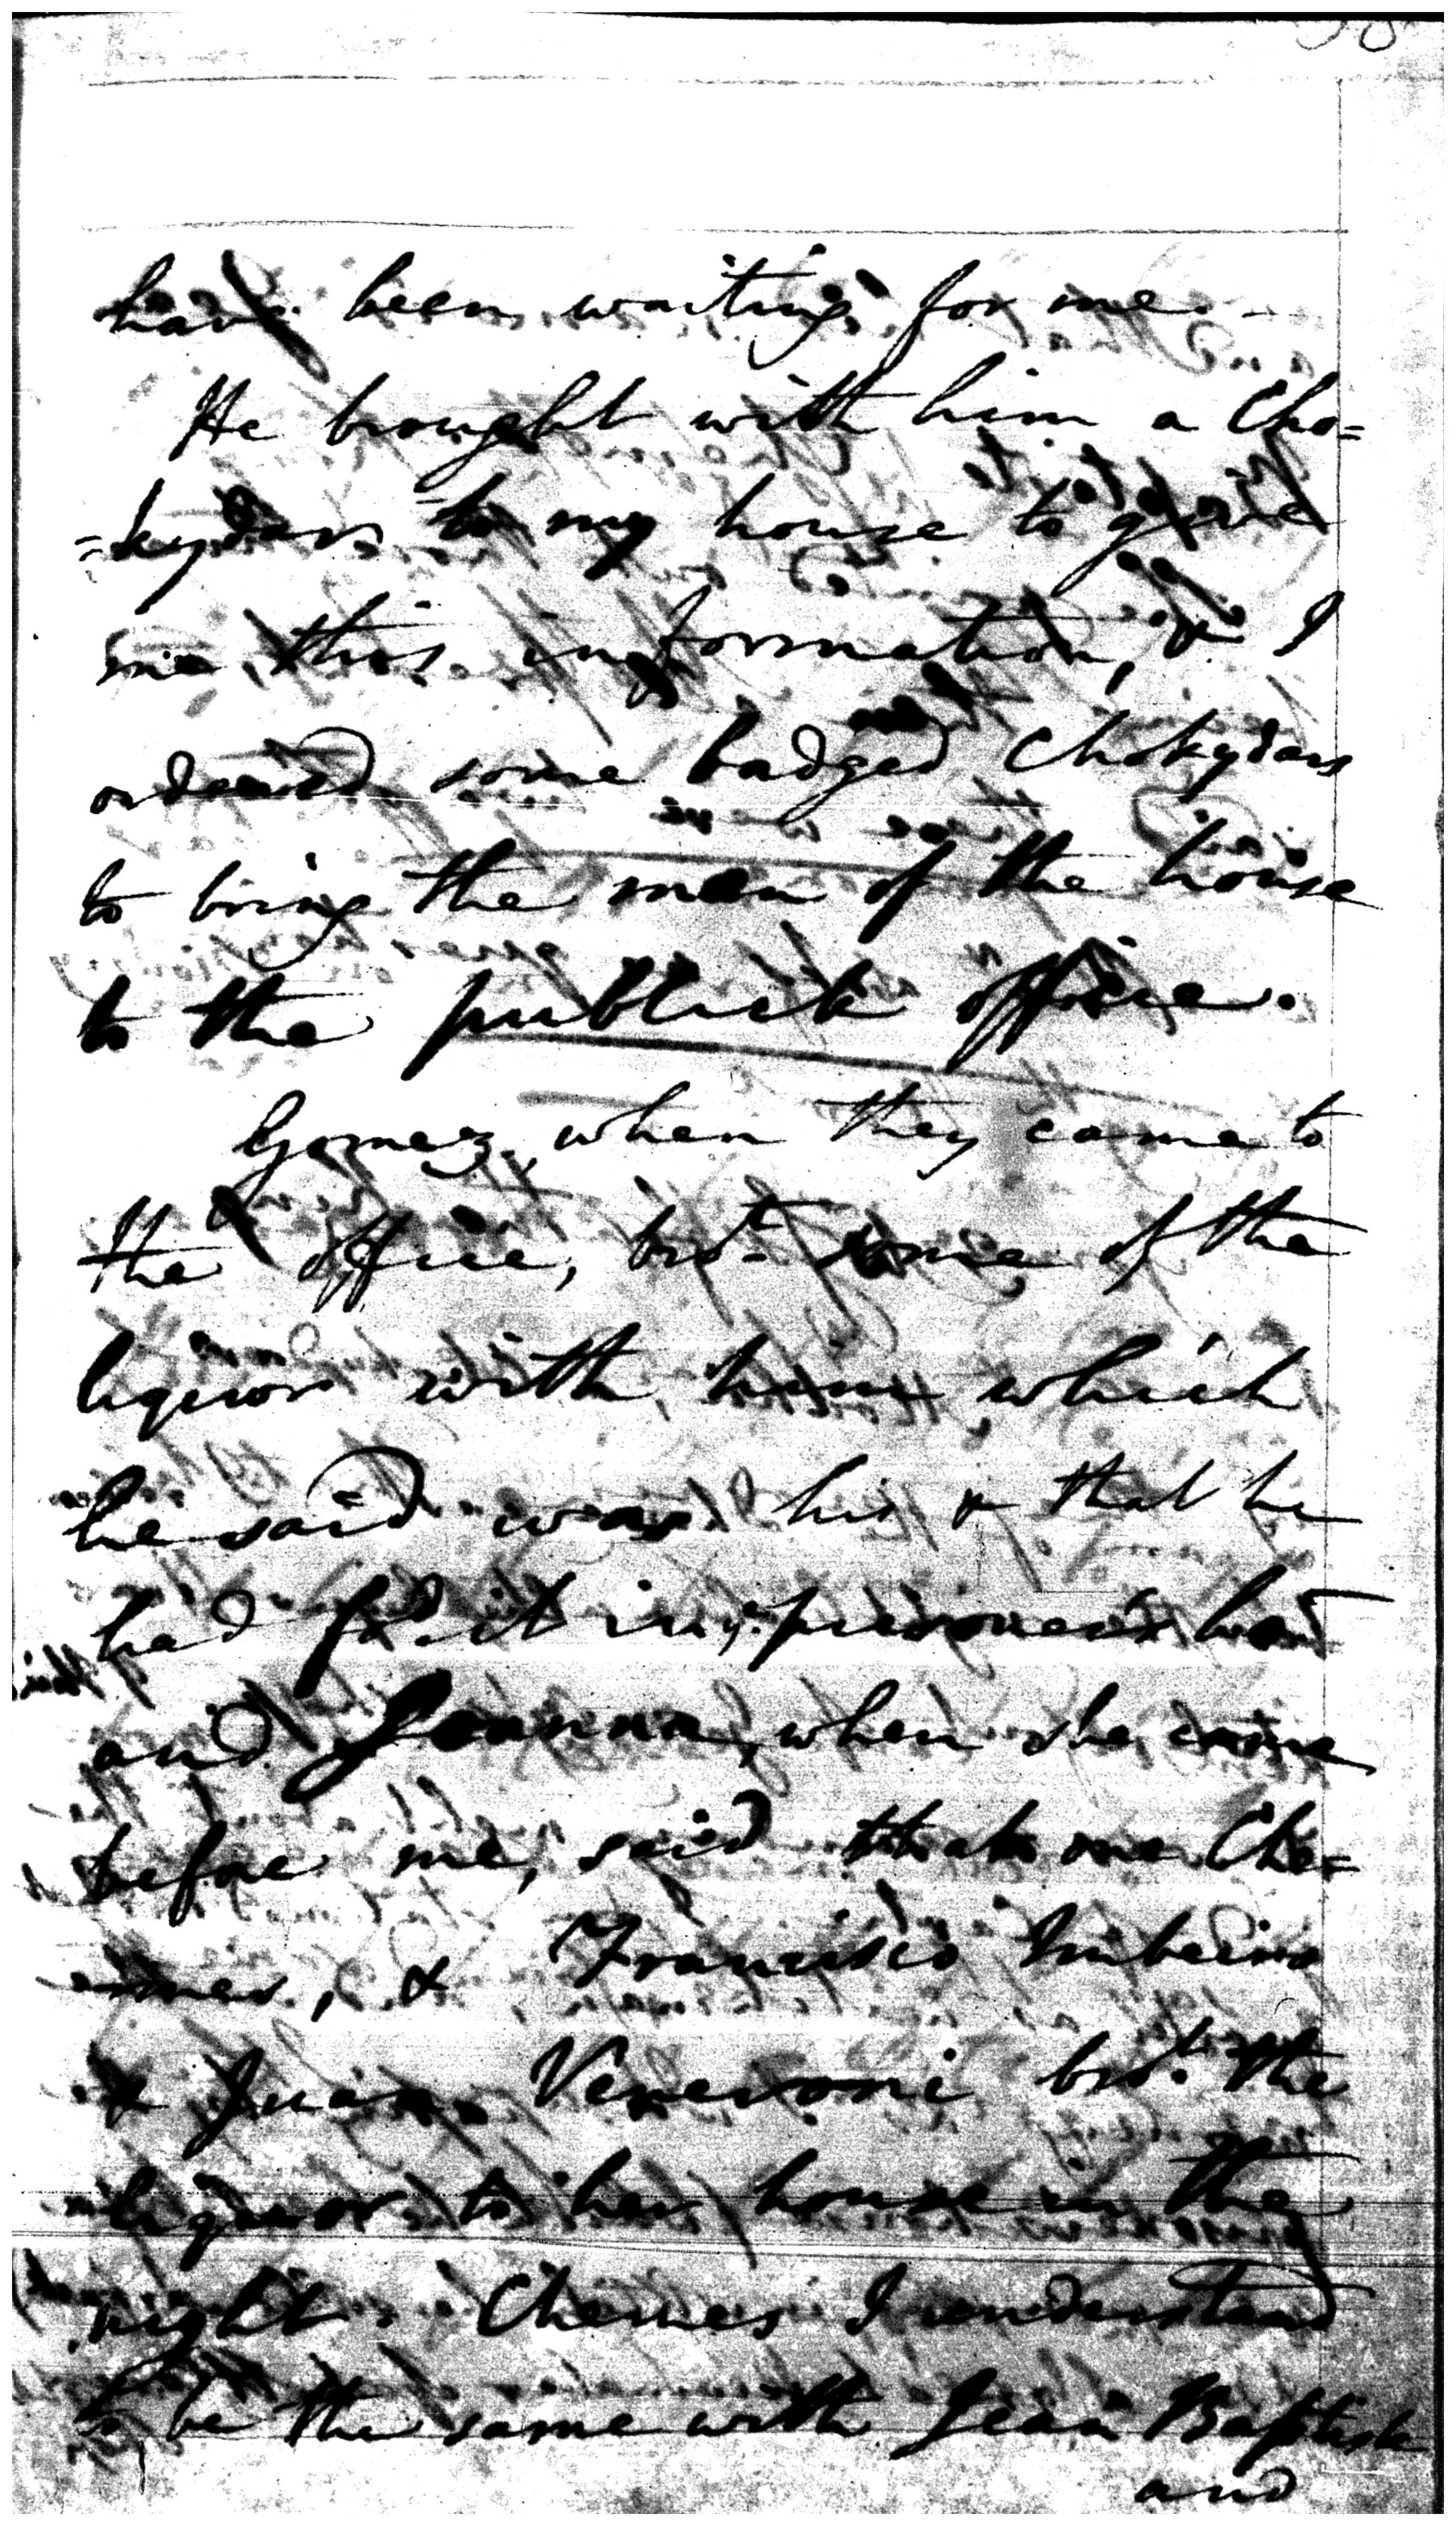 have been waiting for me. -
He brought with him a Cho=
=kydar to my house to give
me this information, & I
ordered some badged Chokydars
to bring the men of the house
to the publick office.
Gomez when they came to
the office, bro.t some of the
liquor with him which
he said was his & that he
had fd. it in ye. prisoner's
and Joanna, when she came
before me, said that one Che=
=mes, & Francisco
& Juan Veneroni bro.t the
liquor to her house in the
night. Chemes I understand
to be the same with Jean Baptiste
and